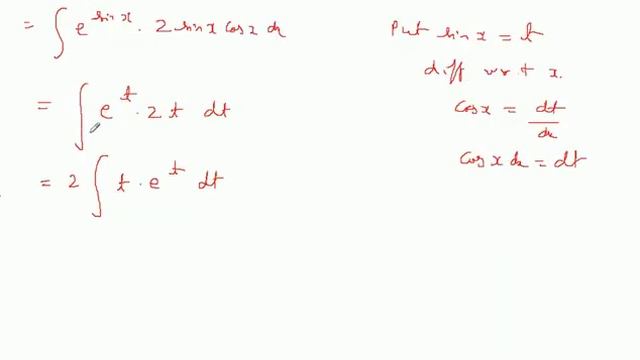 = ∫ e^{sin x} · 2 sin x cos x dx
= ∫ e^t · 2 t dt
= 2 ∫ t · e^t dt
Put sin x = t
diff w r t x.
cos x = dt/dx
cos x dx = dt